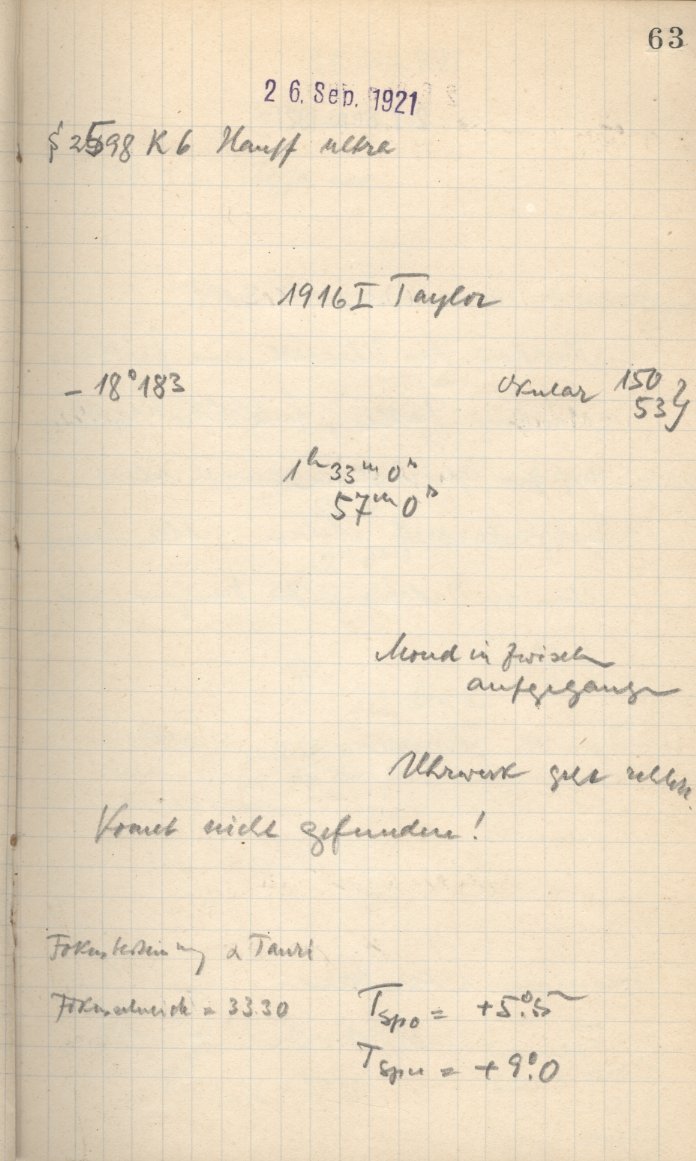 63
26. Sep. 1921
§ 2598 K b Hauff ultra
1916 I Taylor
- 18°183
Okular 150
53
1h 33m 0s
57m 0s
Mond inzwischen
aufgegangen
Uhrwerk geht
Komet nicht gefunden!
Fokusbestimmung α Tauri
= 33.30
Tspo = +5°.5
Tspu = +9°.0